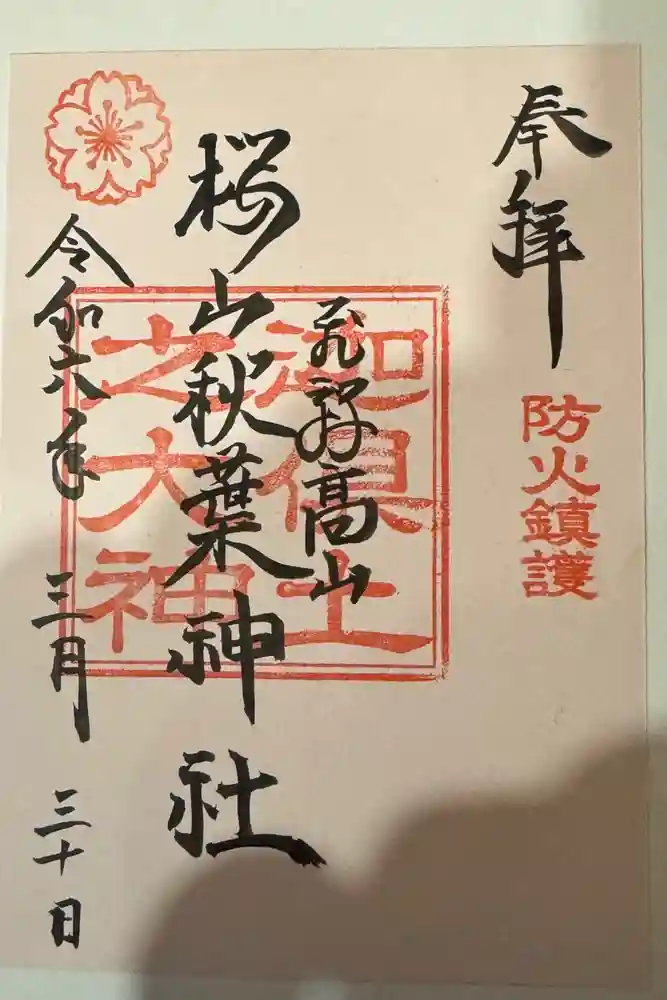 奉拝
防火鎮護
飛騨高山
桜山秋葉神社
迦倶土
之大神
令和六年 三月 三十日